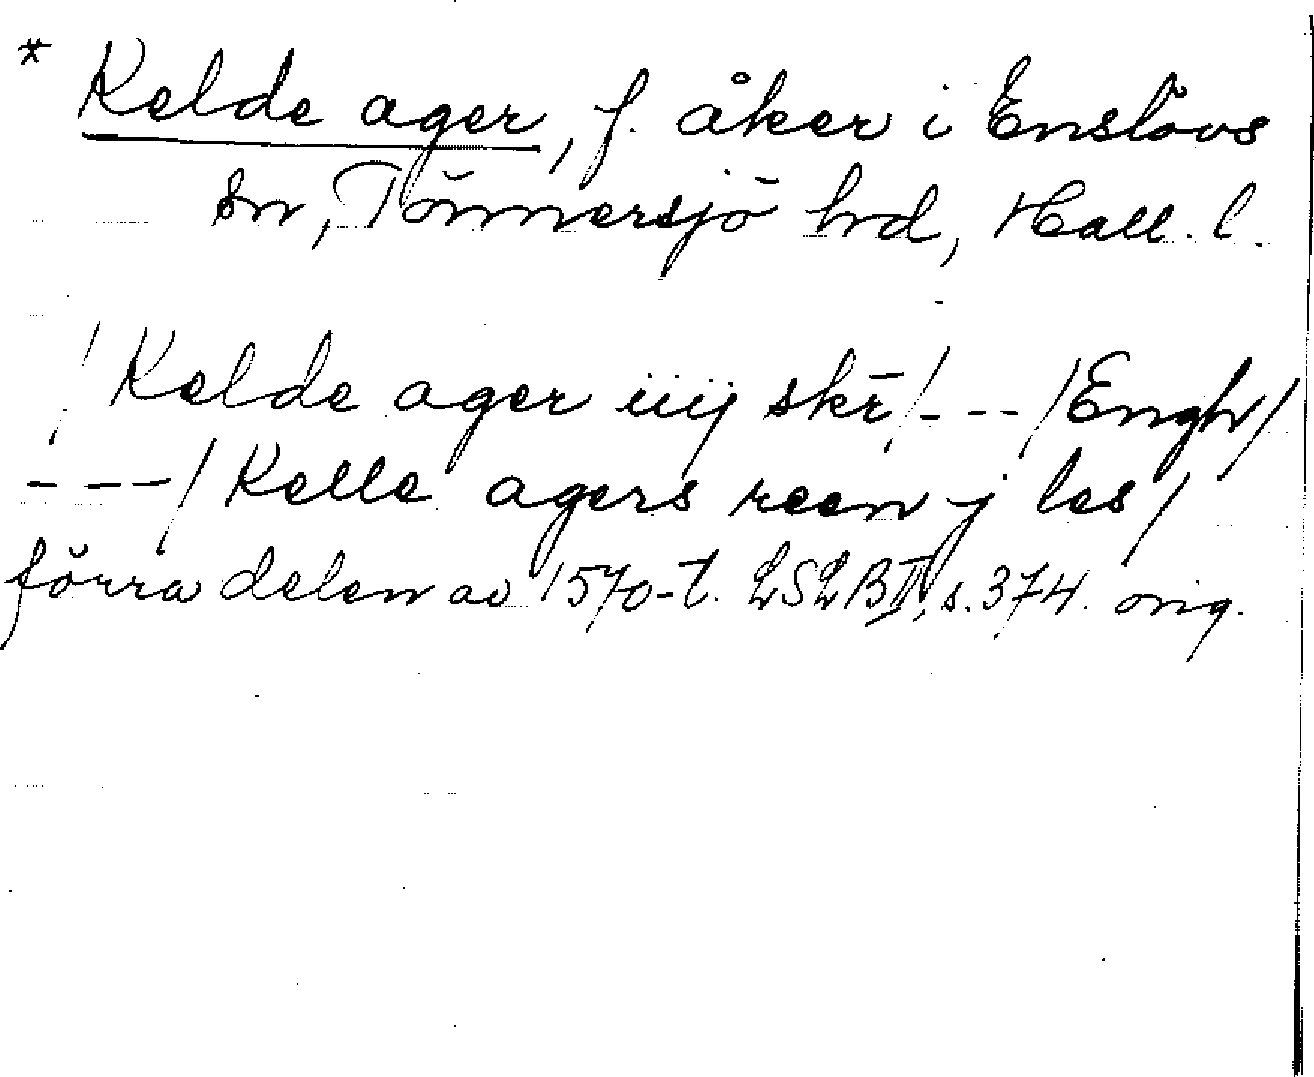 * Kelde ager, f. åker i Enslövs
sn, Tönnersjö hrd, Hall. l.
/Kelde ager iiij skē/---/Engh/
---/Kelle agers reen j les/
förra delen av 1570-t. LSLB II, s. 374. orig.